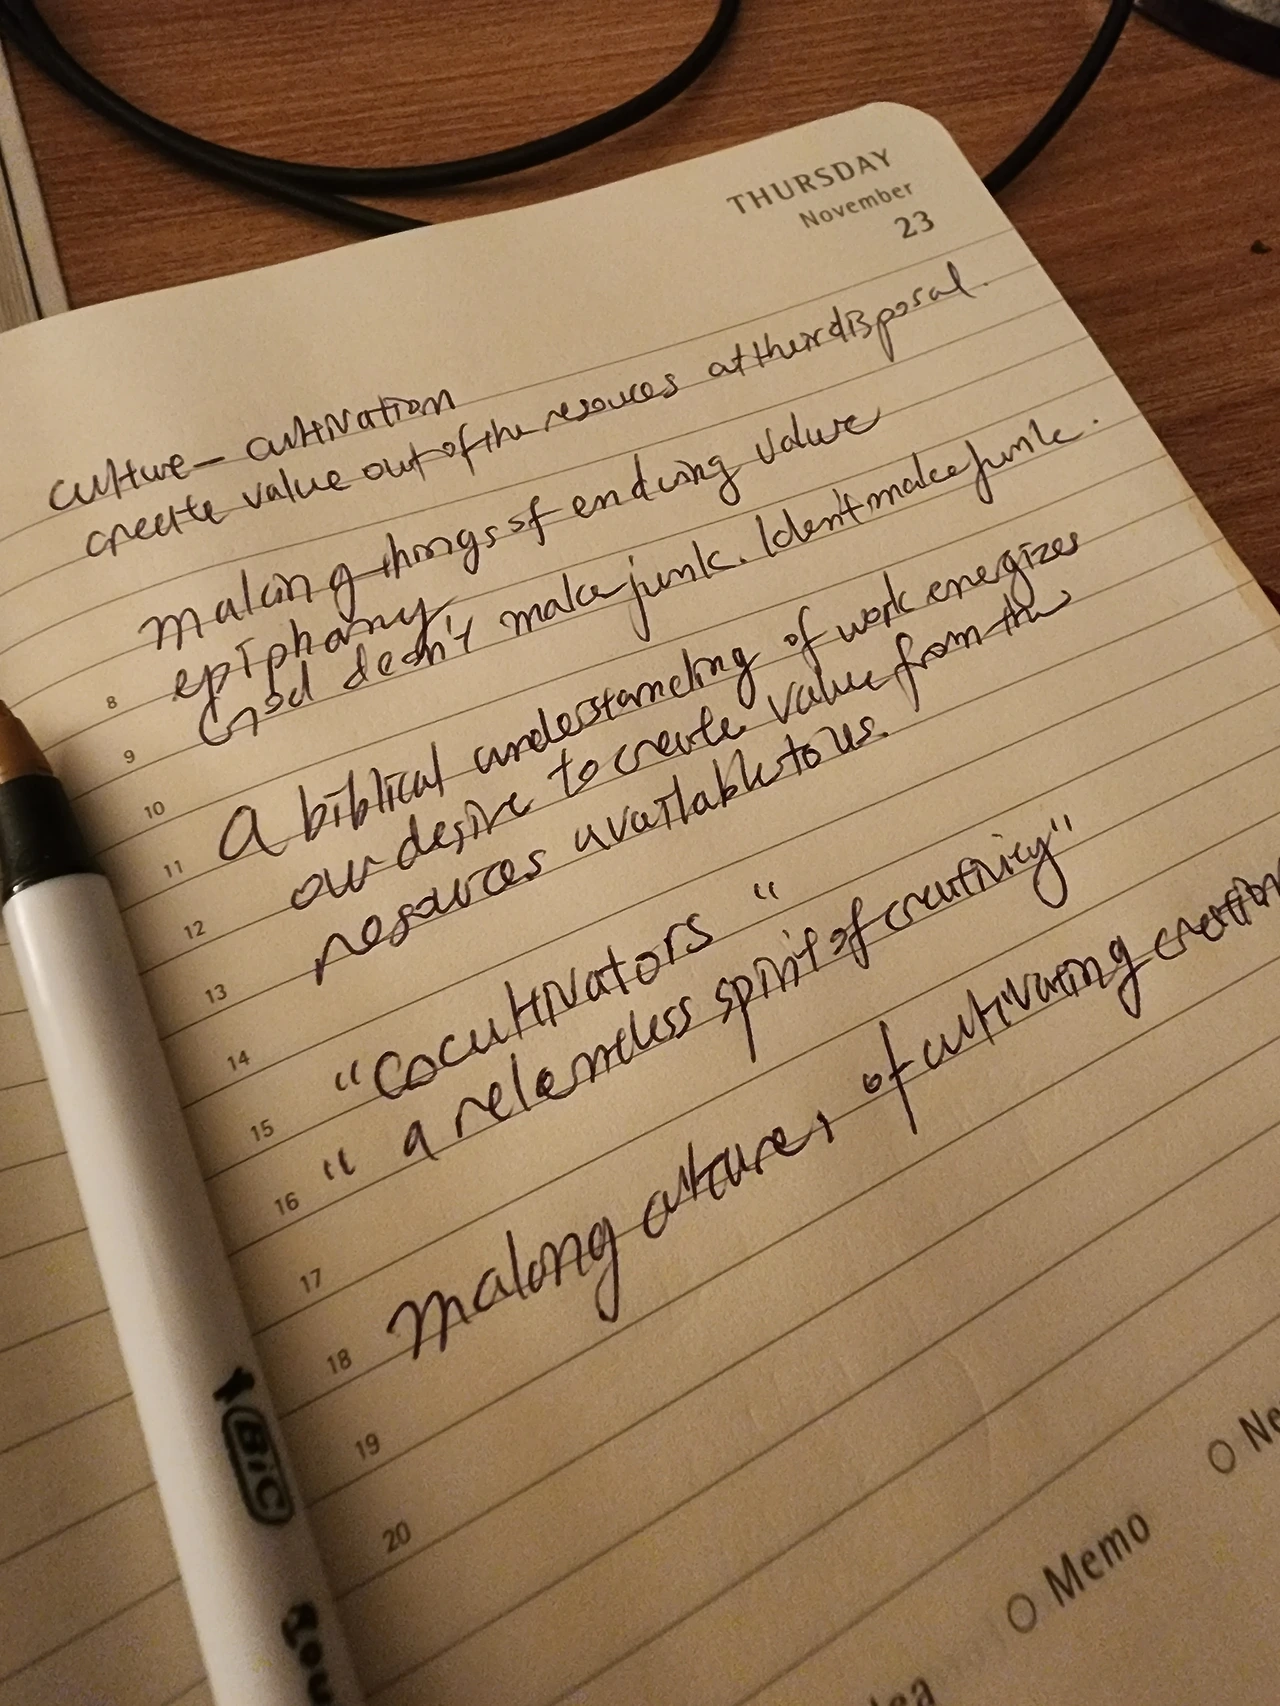 THURSDAY
November
23
culture – cultivation
create value out of the resouces at their disposal.
Making things of enduring value
epiphany
God doesn't make junk. I don't make junk.
A biblical understanding of work energizes
our desire to create value from the
resources available to us.
"Cocultivators"
"a relentless spirit of creativity"
Making culture, of cultivating creation
8
9
10
11
12
13
14
15
16
17
18
19
20
BIC
Memo